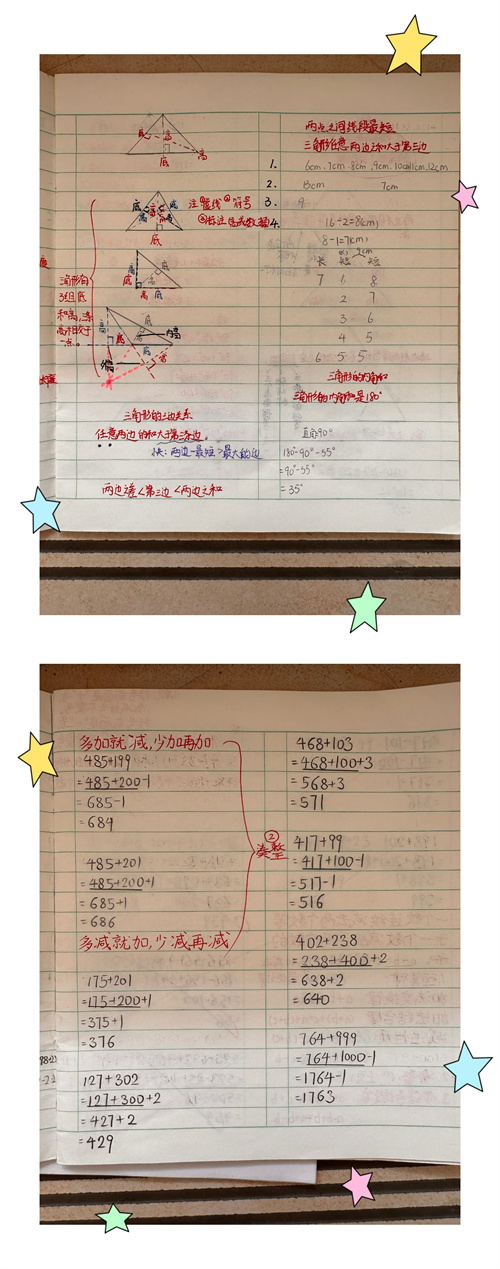 高
底
高
底
底
高
底
注①量线②符号
底
高
底
三角形有
3组底
和高,条
高相交于
一点。
底
高
底
内高
三角形的三边关系
任意两边的和大于第三条边。
快:两边-最短>最大的边
两边差<第三边<两边之和
两点之间线段最短
三角形任意两边之和大于第三边
1. 6cm、7cm、8cm、9cm、10cm、11cm、12cm
2. 13cm 7cm
3. 9
4. 16÷2=8(cm)
8-1=7(cm)
长 短 短
7 6 8
2 7
3 6
4 5
6 5 5
三角形的内角和
三角形的内角和是180°
直角90°
180°-90°-55°
=90°-55°
=35°
多加就减,少加再加
485+199
=485+200-1
=685-1
=684
485+201
=485+200+1
=685+1
=686
多减就加,少减再减
175+201
=175+200+1
=375+1
=376
127+302
=127+300+2
=427+2
=429
②
凑整
468+103
=468+100+3
=568+3
=571
417+99
=417+100-1
=517-1
=516
402+238
=238+400+2
=638+2
=640
764+999
=764+1000-1
=1764-1
=1763